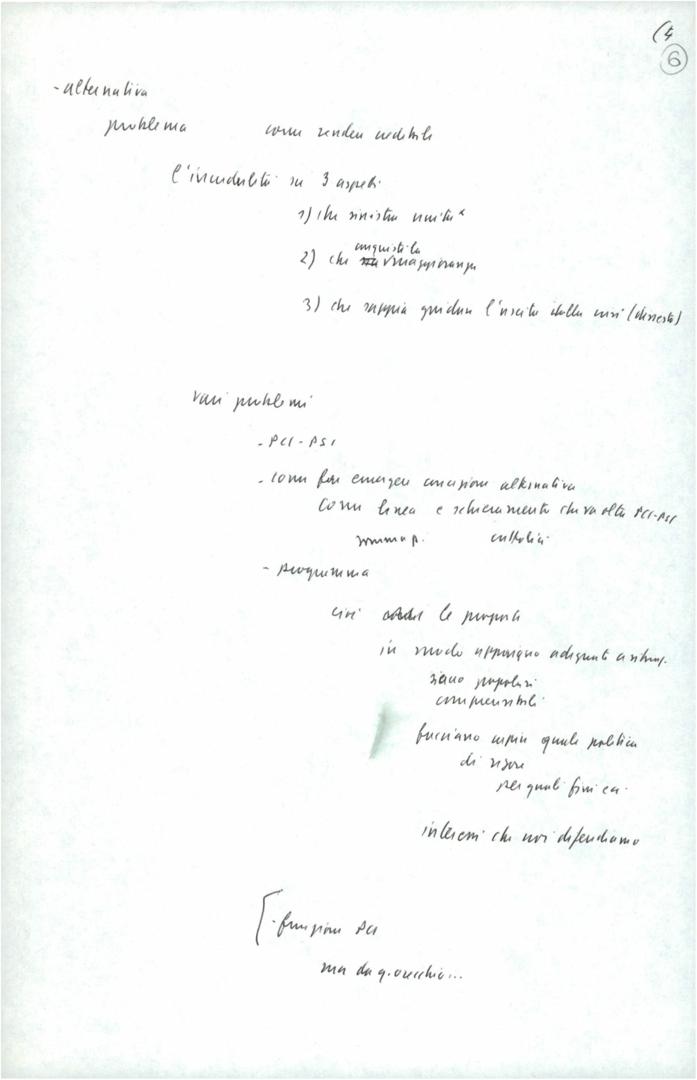 (4
6
- alternativa
problema come rendere credibile
l'incredulità su 3 aspetti
1) che sinistra unita
conquisti la
2) che maggioranza
3) che sappia guidare l'uscita dalla crisi (dissesto)
vari problemi
- PCI - PSI
- come fare emergere concezione alternativa
come linea e schieramento che va oltre PCI-PSI
cattolici
- programma
le proposte
in modo appaiano adeguate a
siano popolari
comprensibili
facciano capire quale politica
di rigore
per quali fini ecc.
interessi che noi difendiamo
- funzione PCI
ma da q. orecchio...